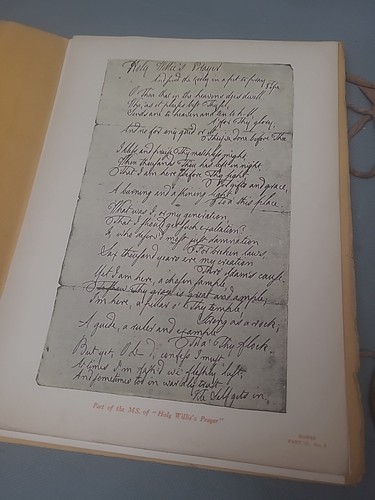 Holy Willie's Prayer
And send the Godly in a pet to pray — Pope
O Thou that in the heavens does dwell
Wha, as it pleases best Thysel,
Sends ane to heaven and ten to h-ll
A' for Thy glory,
And no for any gude or ill
They've done before Thee
I bless and praise Thy matchless might,
When thousands Thou has left in night,
That I am here before Thy sight
For gifts and grace,
A burning and a shining light
To a' this place.
What was I, or my generation,
That I should get such exaltation?
I, wha deserv'd most just damnation
For broken laws
Sax thousand years ere my creation
Thro' Adam's cause.
Yet I am here, a chosen sample,
To shew Thy grace is great and ample;
I'm here, a pillar o' Thy temple,
Strong as a rock,
A guide, a ruler and example
To a' Thy flock.
But yet, O L—d, confess I must
At times I'm fash'd wi' fleshly lust;
And sometimes too on warldly trust
Vile Self gets in;
Part of the MS. of "Holy Willie's Prayer"
BURNS